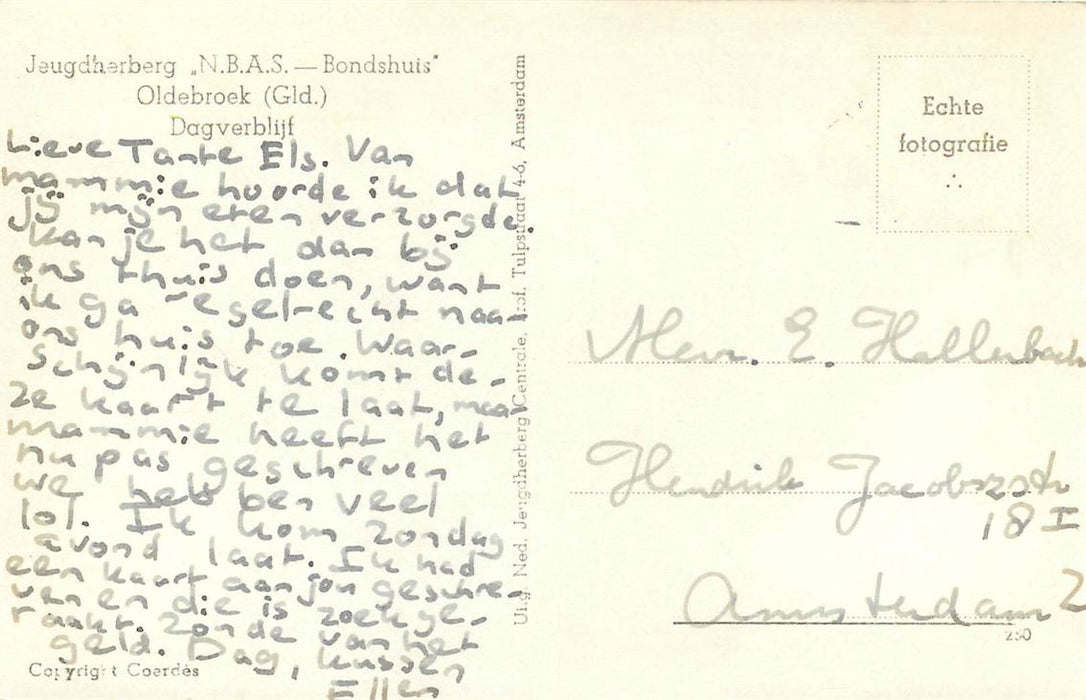 Jeugdherberg „N.B.A.S. — Bondshuis"
Oldebroek (Gld.)
Dagverblijf
Lieve Tante Els. Van
mammie hoorde ik dat
jij mijn eten verzorgde.
kan je het dan bij
ons thuis doen, want
ik ga regelrecht naar
ons huis toe. Waar-
schijnlijk komt de-
ze kaart te laat, maar
mammie heeft het
nu pas geschreven
we heb ben veel
lol. Ik kom zondag
avond laat. Ik had
een kaart aan jou geschre-
ven en die is zoek ge-
raakt. Zonde van het
geld. Dag, kussen
Ellen
Copyright Coerdès
Uitg. Ned. Jeugdherberg Centrale, Prof. Tulpstraat 4-6, Amsterdam
Echte
fotografie
Mevr. E. Hallenbach
Hendrik Jacobszstr
18 I
Amsterdam Z
250